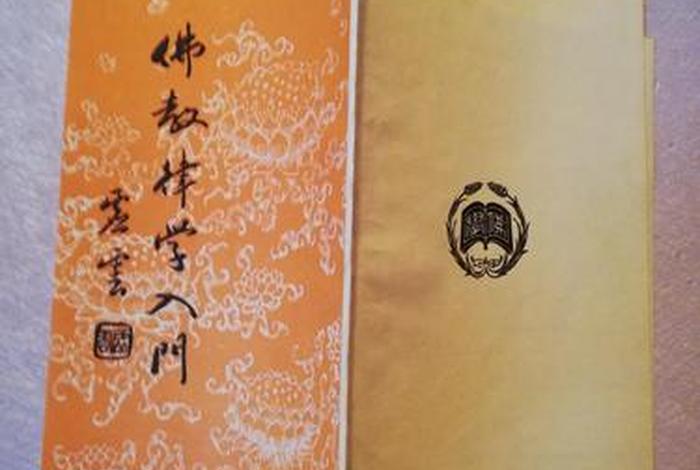 佛教律学入門
虚雲